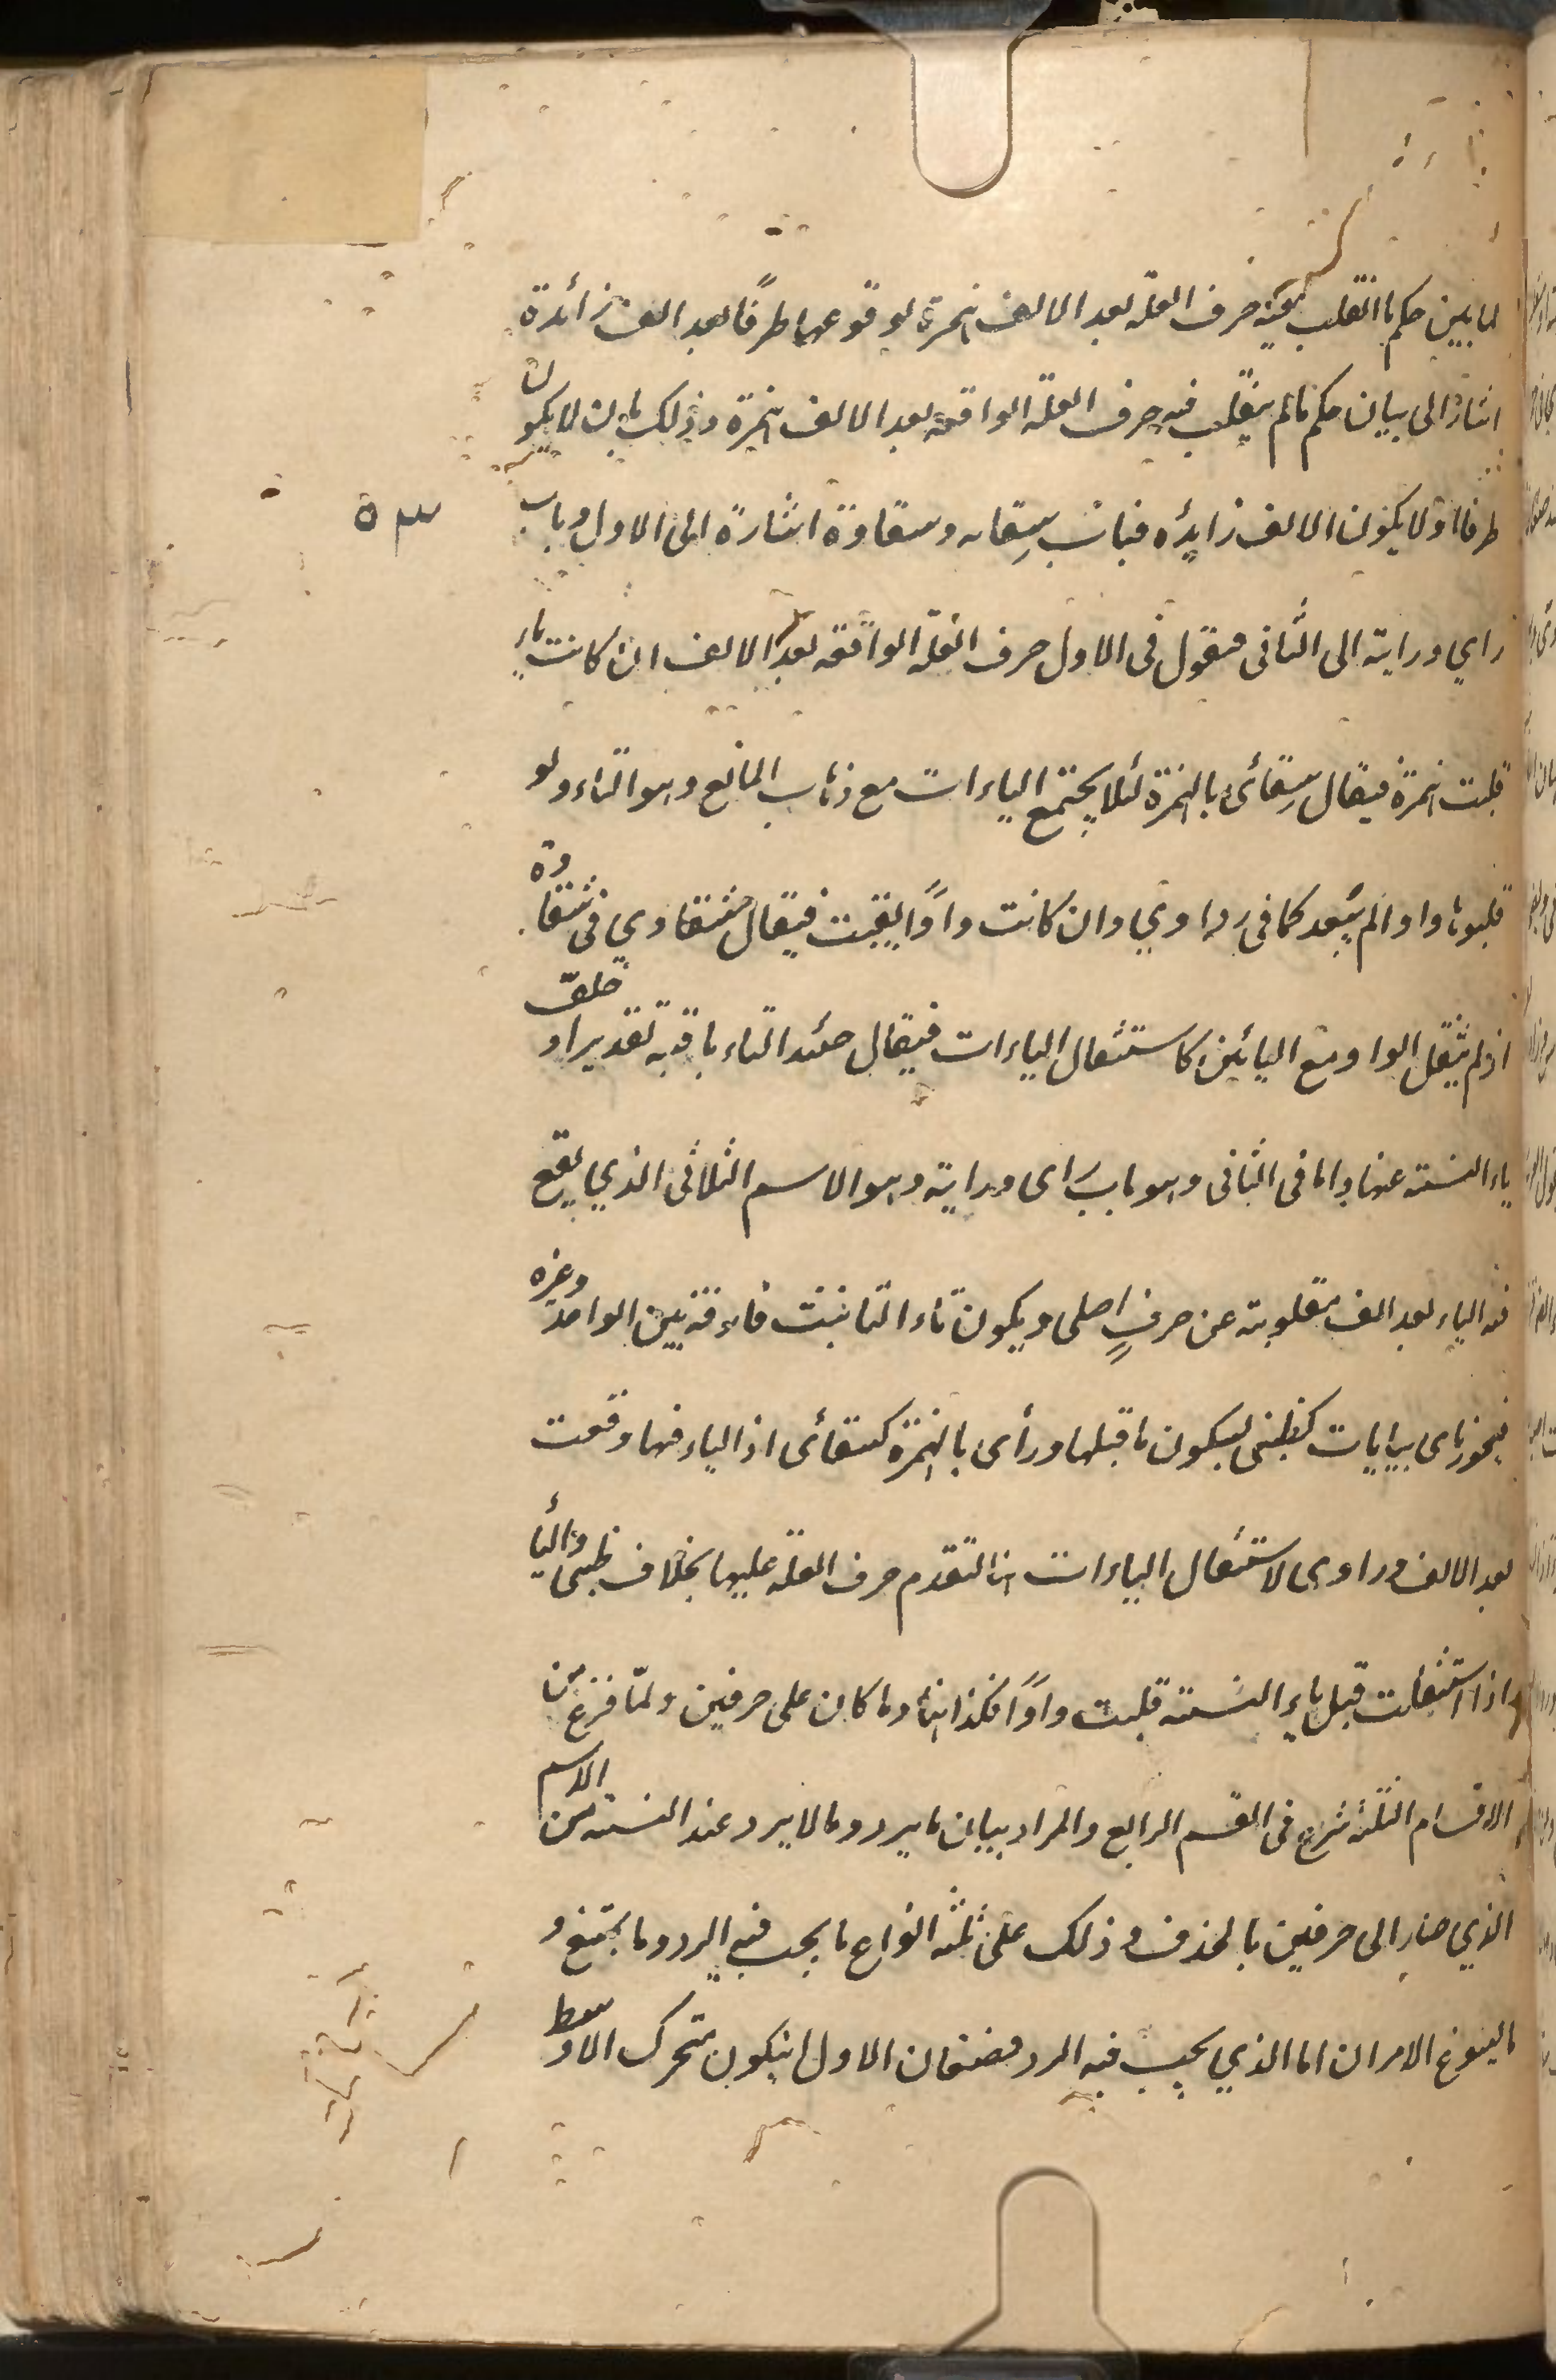 لما بين حكم ما انقلب فيه حرف العلة بعد الالف همزة لوقوعها طرفًا بعد الف زائدة
اشار الى بيان حكم ما لم ينقلب فيه حرف العلة الواقعة بعد الالف همزة وذلك بان لا يكون
طرفا او لا يكون الالف زايدة فباب سقاية وشقاوة اشارة الى الاول وباب
راي وراية الى الثاني فنقول في الاول حرف العلة الواقعة بعد الالف ان كانت ياء
قلبت همزة فيقال سقائي بالهمزة لئلا يجتمع الياءات مع ذهاب المانع وهو التاء ولو
قلبوها واوا لم يبعد كما في رداوي وان كانت واوًا بقيت فيقال شقاوي في شقاوة
اذ لم يثقل الواو مع اليائين كاستثقال الياءات فيقال حينئذ التاء باقية تقديرا و
ياء النسبة عنها واما في الثاني وهو باب راى وراية وهو الاسم الثلاثي الذي يقع
فيه الياء بعد الف مقلوبة عن حرفٍ اصلى ويكون تاء التانيث فارقة بين الواحد وغيره
فيجوز راى بيايات كظبى لسكون ما قبلها ورأى بالهمزة كسقائى اذ الياء فيها وقعت
بعد الالف وراوى لاستثقال الياءات هنا لتقدم حرف العلة عليها بخلاف ظبى والياء
اذا استثقلت قبل ياء النسبة قلبت واوًا فكذا هنا وما كان على حرفين ولمّا فرغ من
الاقسام الثلثة شرع في القسم الرابع والمراد بيان ما يرد وما لا يرد عند النسبة من الاسم
الذي صار الى حرفين بالحذف وذلك على ثلثة انواع ما يجب فيه الرد وما يمتنع و
ما يسوغ الامران اما الذي يجب فيه الرد فصنفان الاول ان يكون متحرك الاوسط